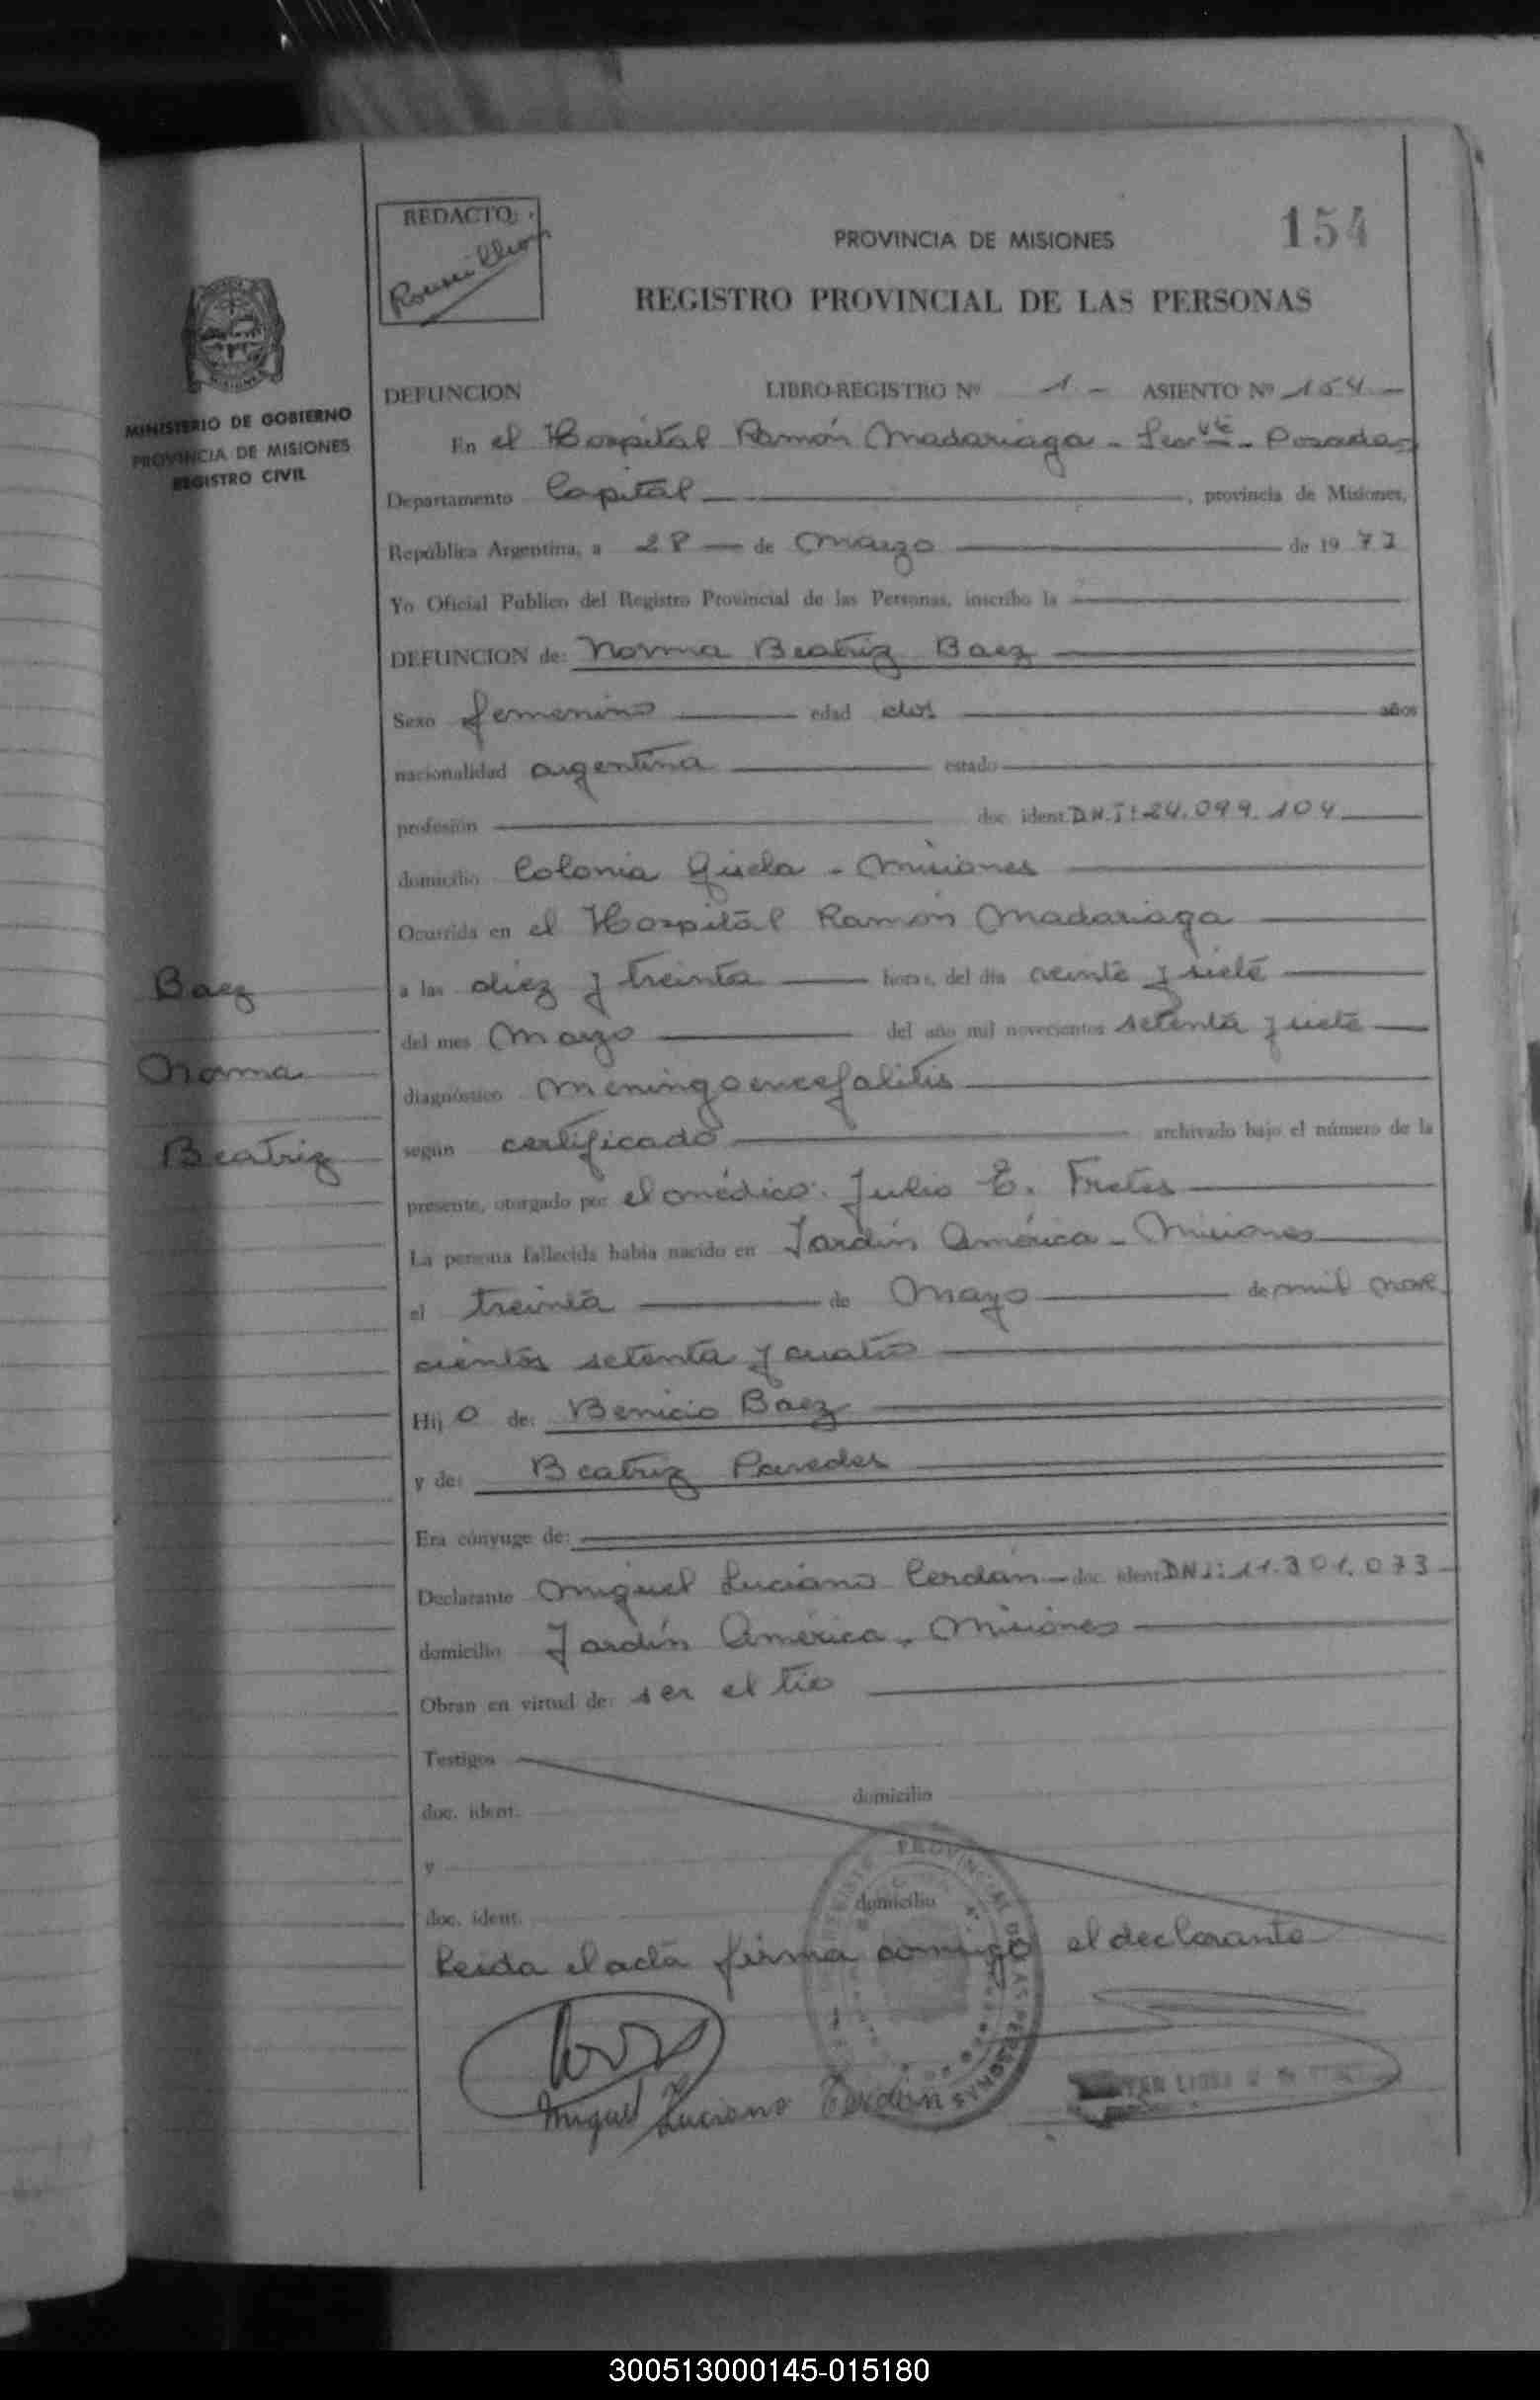 REDACTO:
PROVINCIA DE MISIONES
154
REGISTRO PROVINCIAL DE LAS PERSONAS
MINISTERIO DE GOBIERNO
PROVINCIA DE MISIONES
REGISTRO CIVIL
DEFUNCION LIBRO-REGISTRO Nº 1 - ASIENTO Nº 154
En el Hospital Ramón Madariaga - Posadas
Departamento Capital, provincia de Misiones,
República Argentina, a 28 de Marzo de 19 77
Yo Oficial Público del Registro Provincial de las Personas, inscribo la
DEFUNCION de: Norma Beatriz Baez
Sexo femenino edad dos años
nacionalidad argentina estado
profesión doc. ident. D.N.I: 24.099.104
domicilio Colonia Gisela - Misiones
Ocurrida en el Hospital Ramón Madariaga
a las diez y treinta horas, del día veinte y siete
del mes Marzo del año mil novecientos setenta y siete
diagnóstico Meningoencefalitis
según certificado archivado bajo el número de la
presente, otorgado por el médico: Julio E. Fretes
La persona fallecida había nacido en Jardín América - Misiones
el treinta de Mayo de mil nove
cientos setenta y cuatro
Hij o de: Benicio Baez
y de: Beatriz Paredes
Era cónyuge de:
Declarante Miguel Luciano Cerdán doc. ident. DNI: 11.301.073
domicilio Jardín América, Misiones
Obran en virtud de: ser el tío
Testigos
doc. ident. domicilio
y
doc. ident. domicilio
Leida el acta firma conmigo el declarante
Miguel Luciano Cerdán
Baez
Norma
Beatriz
PROVINCIAL DE LAS PERSONAS
300513000145-015180